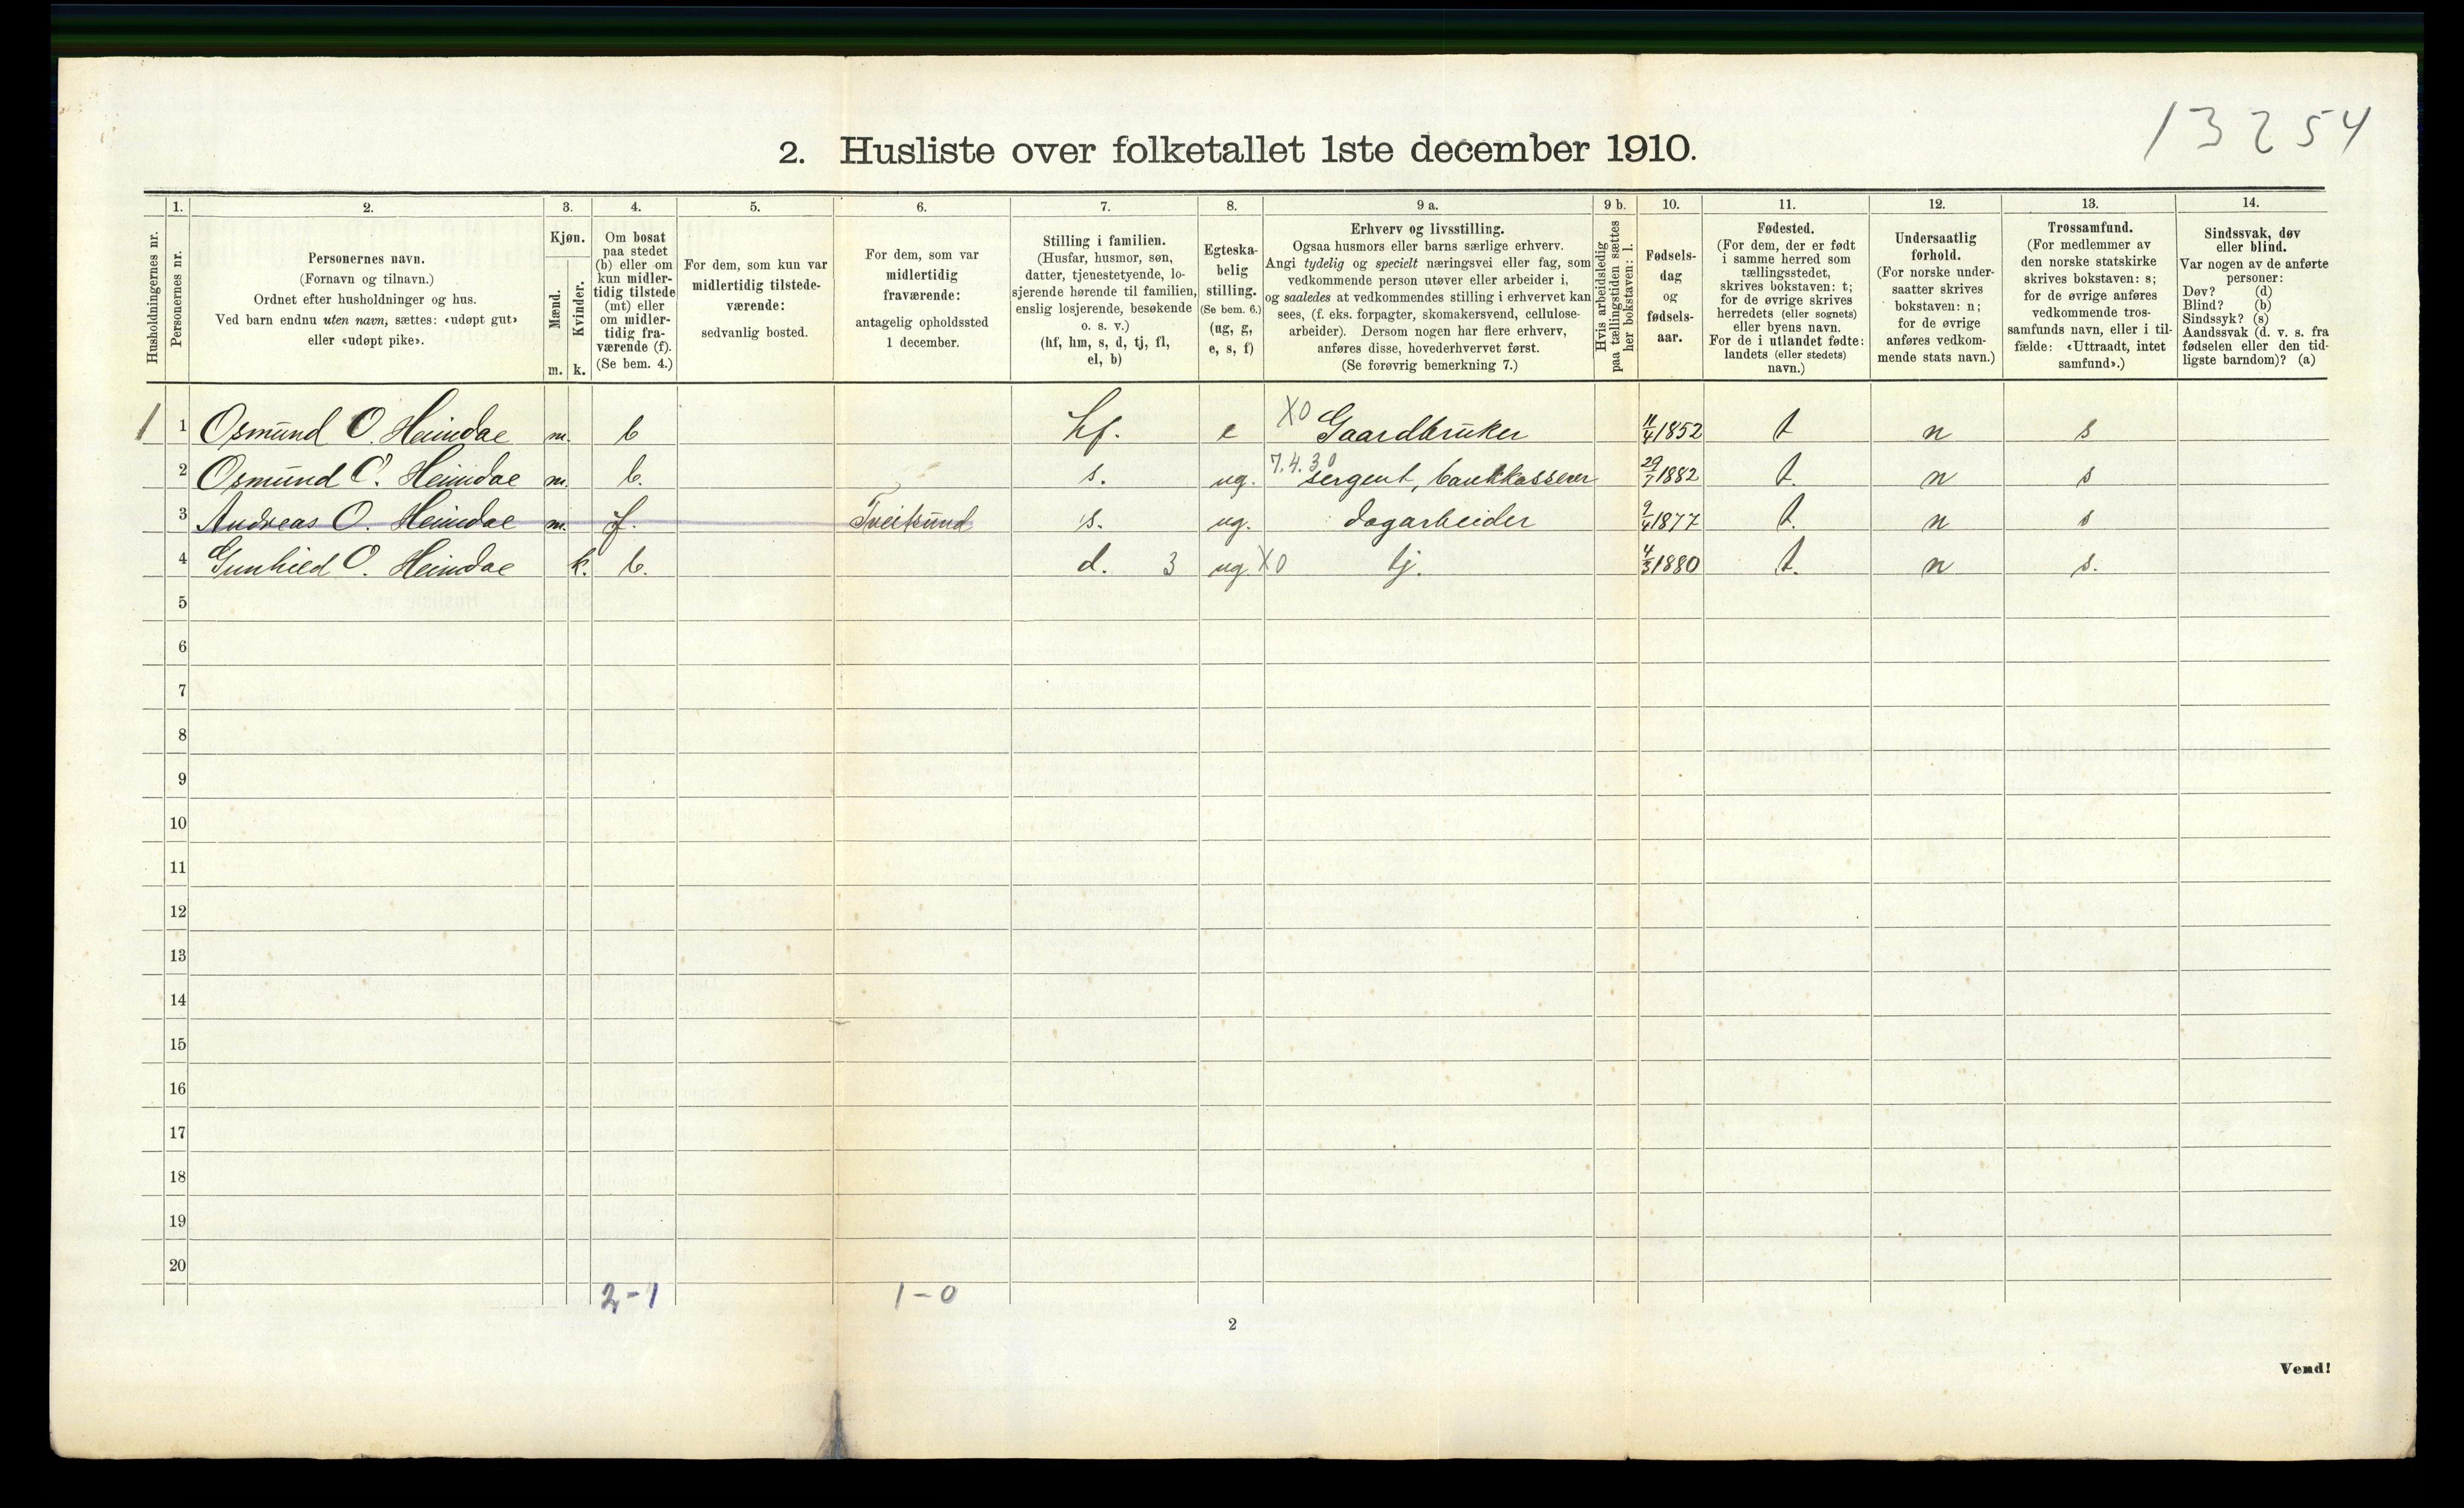 13254
2. Husliste over folketallet 1ste december 1910.
Husholdningernes nr.
1.
Personernes nr.
2.
Personernes navn.
(Fornavn og tilnavn.)
Ordnet efter husholdninger og hus.
Ved barn endnu uten navn, sættes: «udøpt gut»
eller «udøpt pike».
3.
Kjøn.
Mænd.
Kvinder.
m. k.
4.
Om bosat
paa stedet
(b) eller om
kun midler-
tidig tilstede
(mt) eller
om midler-
tidig fra-
værende (f).
(Se bem. 4.)
5.
For dem, som kun var
midlertidig tilstede-
værende:
sedvanlig bosted.
6.
For dem, som var
midlertidig
fraværende:
antagelig opholdssted
1 december.
7.
Stilling i familien.
(Husfar, husmor, søn,
datter, tjenestetyende, lo-
sjerende hørende til familien,
enslig losjerende, besøkende
o. s. v.)
(hf, hm, s, d, tj, fl,
el, b)
8.
Egteska-
belig
stilling.
(Se bem. 6.)
(ug, g,
e, s, f)
9 a.
Erhverv og livsstilling.
Ogsaa husmors eller barns særlige erhverv.
Angi tydelig og specielt næringsvei eller fag, som
vedkommende person utøver eller arbeider i,
og saaledes at vedkommendes stilling i erhvervet kan
sees, (f. eks. forpagter, skomakersvend, cellulose-
arbeider). Dersom nogen har flere erhverv,
anføres disse, hovederhvervet først.
(Se forøvrig bemerkning 7.)
9 b.
Hvis arbeidsledig
paa tællingstiden sættes
her bokstaven: l.
10.
Fødsels-
dag
og
fødsels-
aar.
11.
Fødested.
(For dem, der er født
i samme herred som
tællingsstedet,
skrives bokstaven: t;
for de øvrige skrives
herredets (eller sognets)
eller byens navn.
For de i utlandet fødte:
landets (eller stedets)
navn.)
12.
Undersaatlig
forhold.
(For norske under-
saatter skrives
bokstaven: n;
for de øvrige
anføres vedkom-
mende stats navn.)
13.
Trossamfund.
(For medlemmer av
den norske statskirke
skrives bokstaven: s;
for de øvrige anføres
vedkommende tros-
samfunds navn, eller i til-
fælde: «Uttraadt, intet
samfund».)
14.
Sindssvak, døv
eller blind.
Var nogen av de anførte
personer:
Døv? (d)
Blind? (b)
Sindssyk? (s)
Aandssvak (d. v. s. fra
fødselen eller den tid-
ligste barndom)? (a)
1 1 Osmund O. Heimdae m. b hf. e X0 Gaardbruker 11/4 1852 t n s
2 Osmund O. Heimdae m. b. s. ug. 7.4.30 sergent, bankkasserer 29/7 1882 t. n s
3 Andreas O. Heimdae m. f. Tveitsund s. ug. dagarbeider 9/4 1877 t. n s
4 Gunhild O. Heimdae k. b. d. 3 ug. X0 tj. 4/3 1880 t. n s.
5
6
7
8
9
10
11
12
13
14
15
16
17
18
19
20
2-1 1-0
2
Vend!